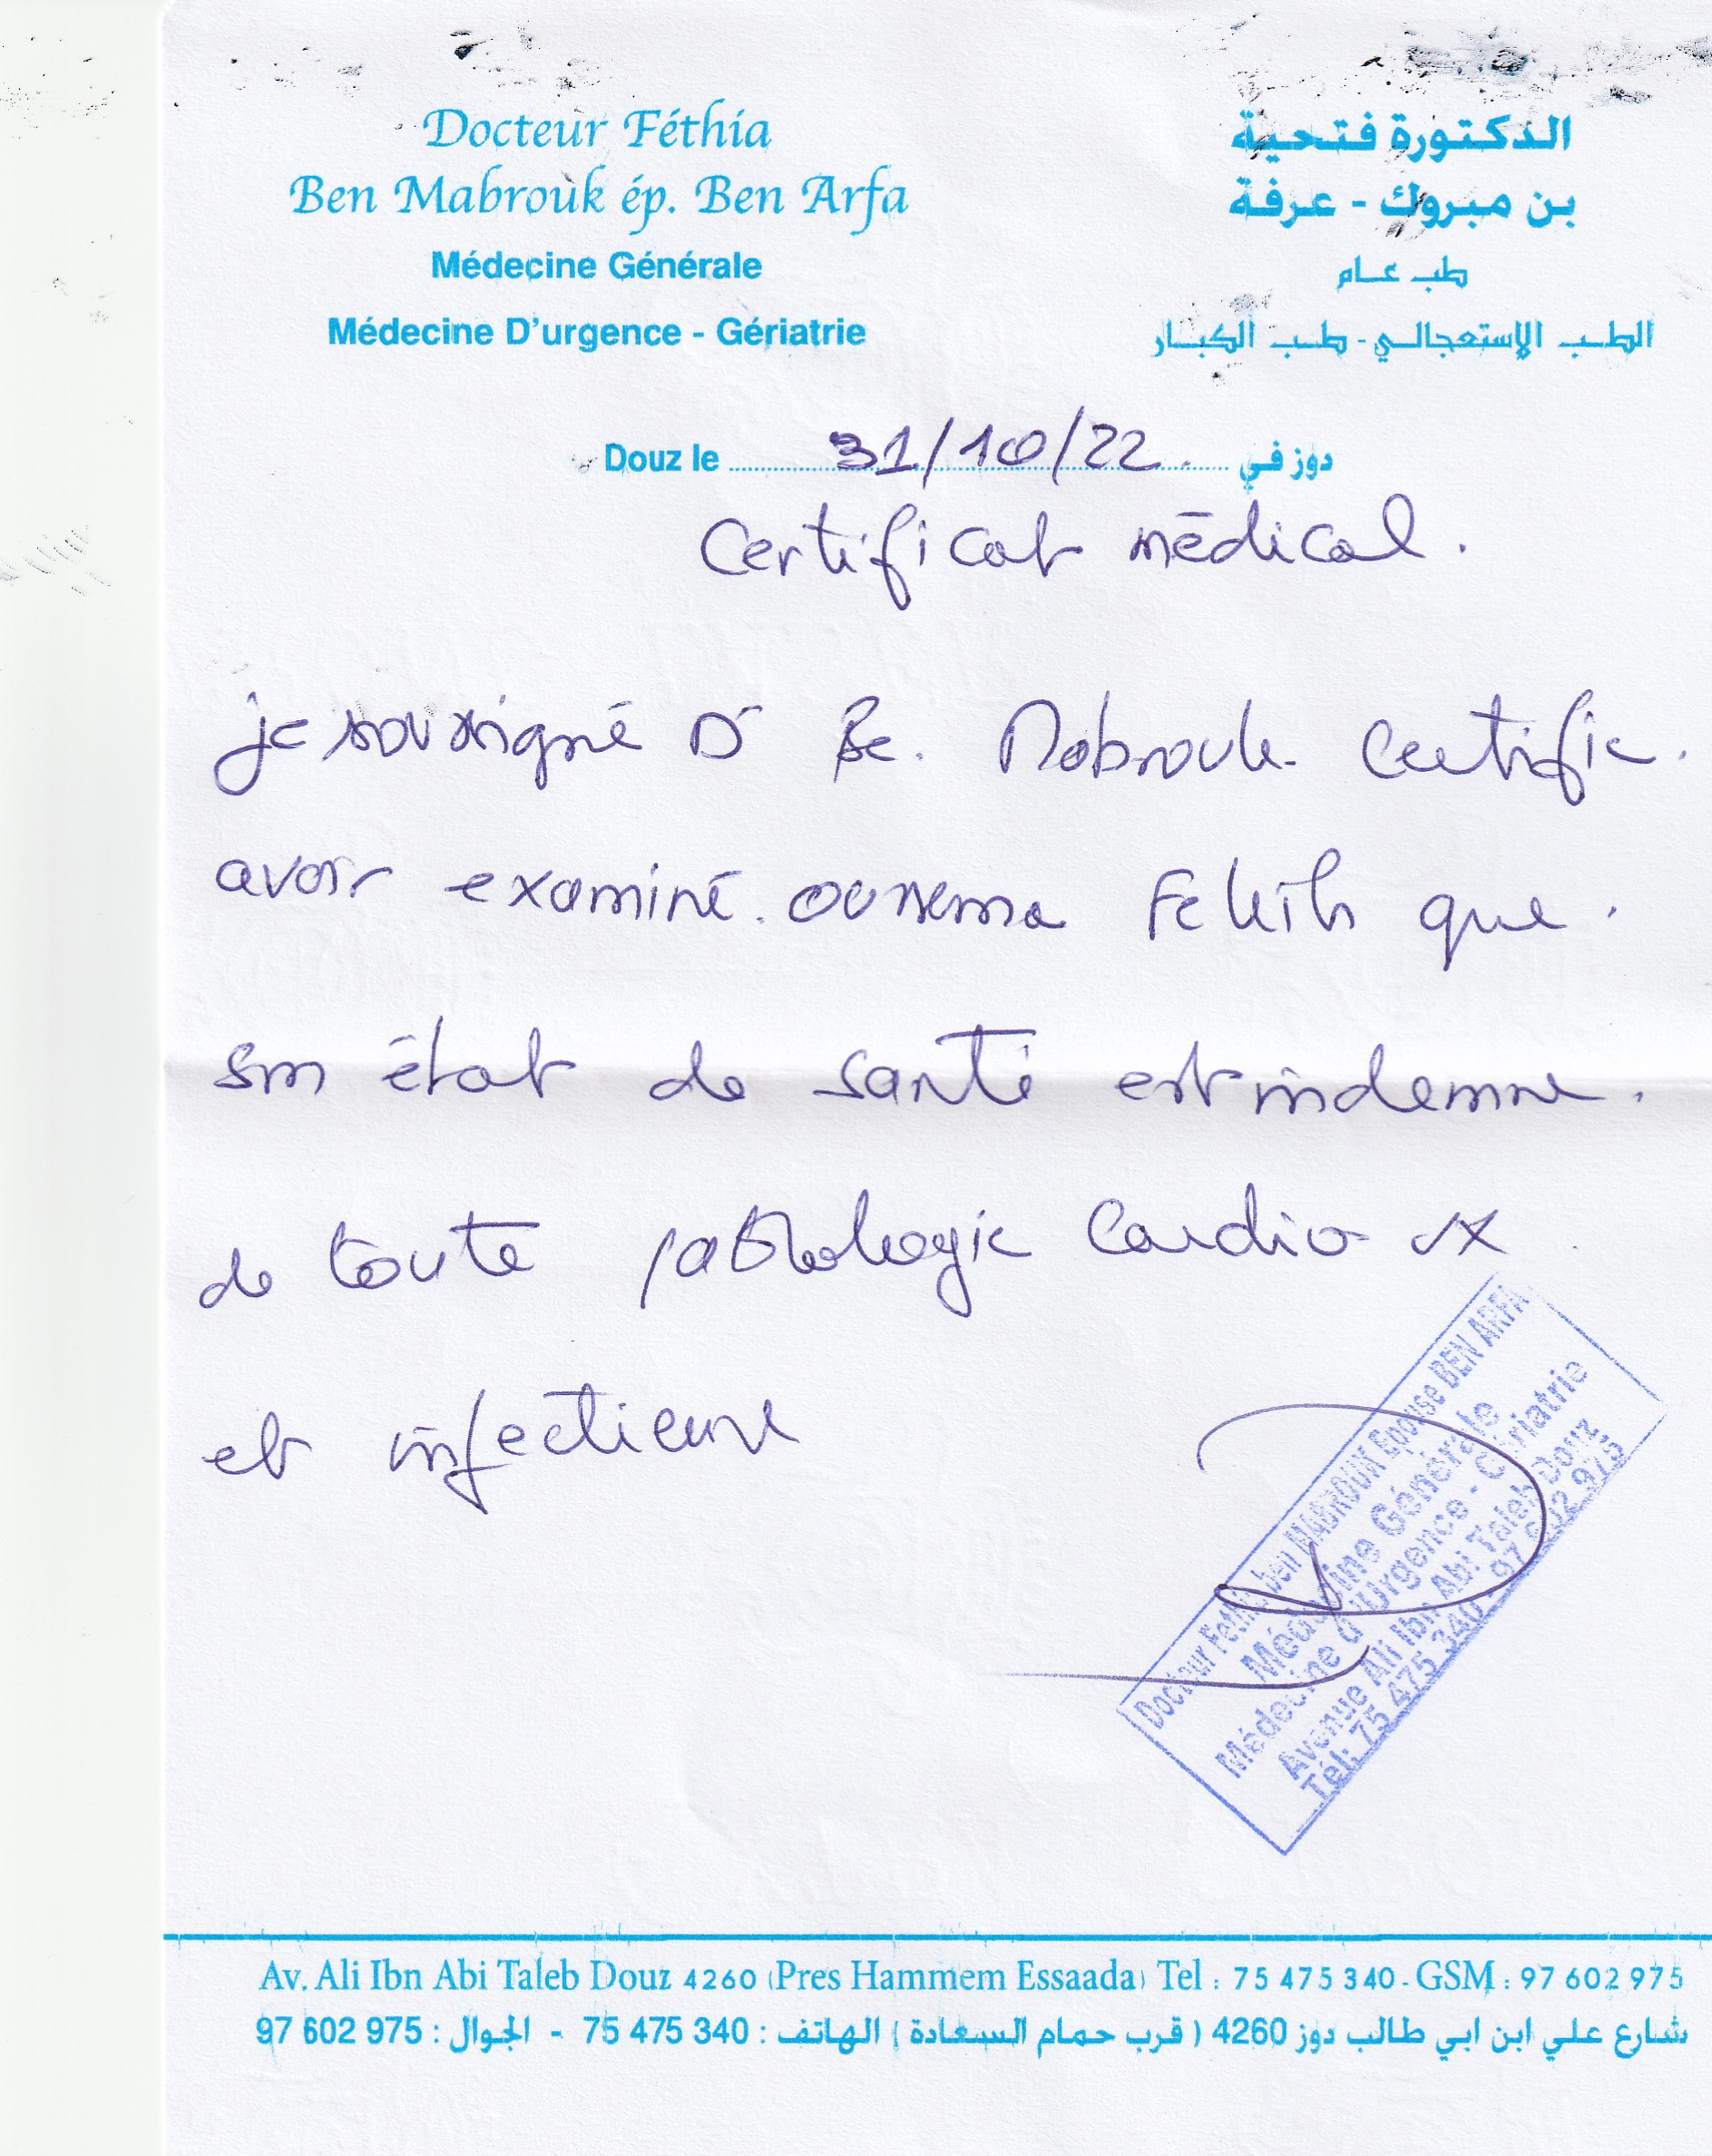 Docteur Féthia
Ben Mabrouk ép. Ben Arfa
Médecine Générale
Médecine D'urgence - Gériatrie
الدكتورة فتحية
بن مبروك - عرفة
طب عام
الطب الإستعجالي - طب الكبار
Douz le 31/10/22. دوز في
Certificat médical.
je soussigné Dr Be. Mabrouk certifie.
avoir examiné. oussema Fekih que.
son état de santé est indemne.
de toute pathologie Cardio vx
et infectieuse
Docteur Fethia ben MABROUK Epouse BEN ARFA
Médecine Générale
Médecine d'Urgence - Gériatrie
Avenue Ali Ibn Abi Taleb Douz
Tél: 75 475 340 - 97 602 975
Av. Ali Ibn Abi Taleb Douz 4260 (Pres Hammem Essaada) Tel : 75 475 340 - GSM : 97 602 975
شارع علي ابن ابي طالب دوز 4260 ( قرب حمام السعادة ) الهاتف : 340 475 75 - الجوال : 975 602 97